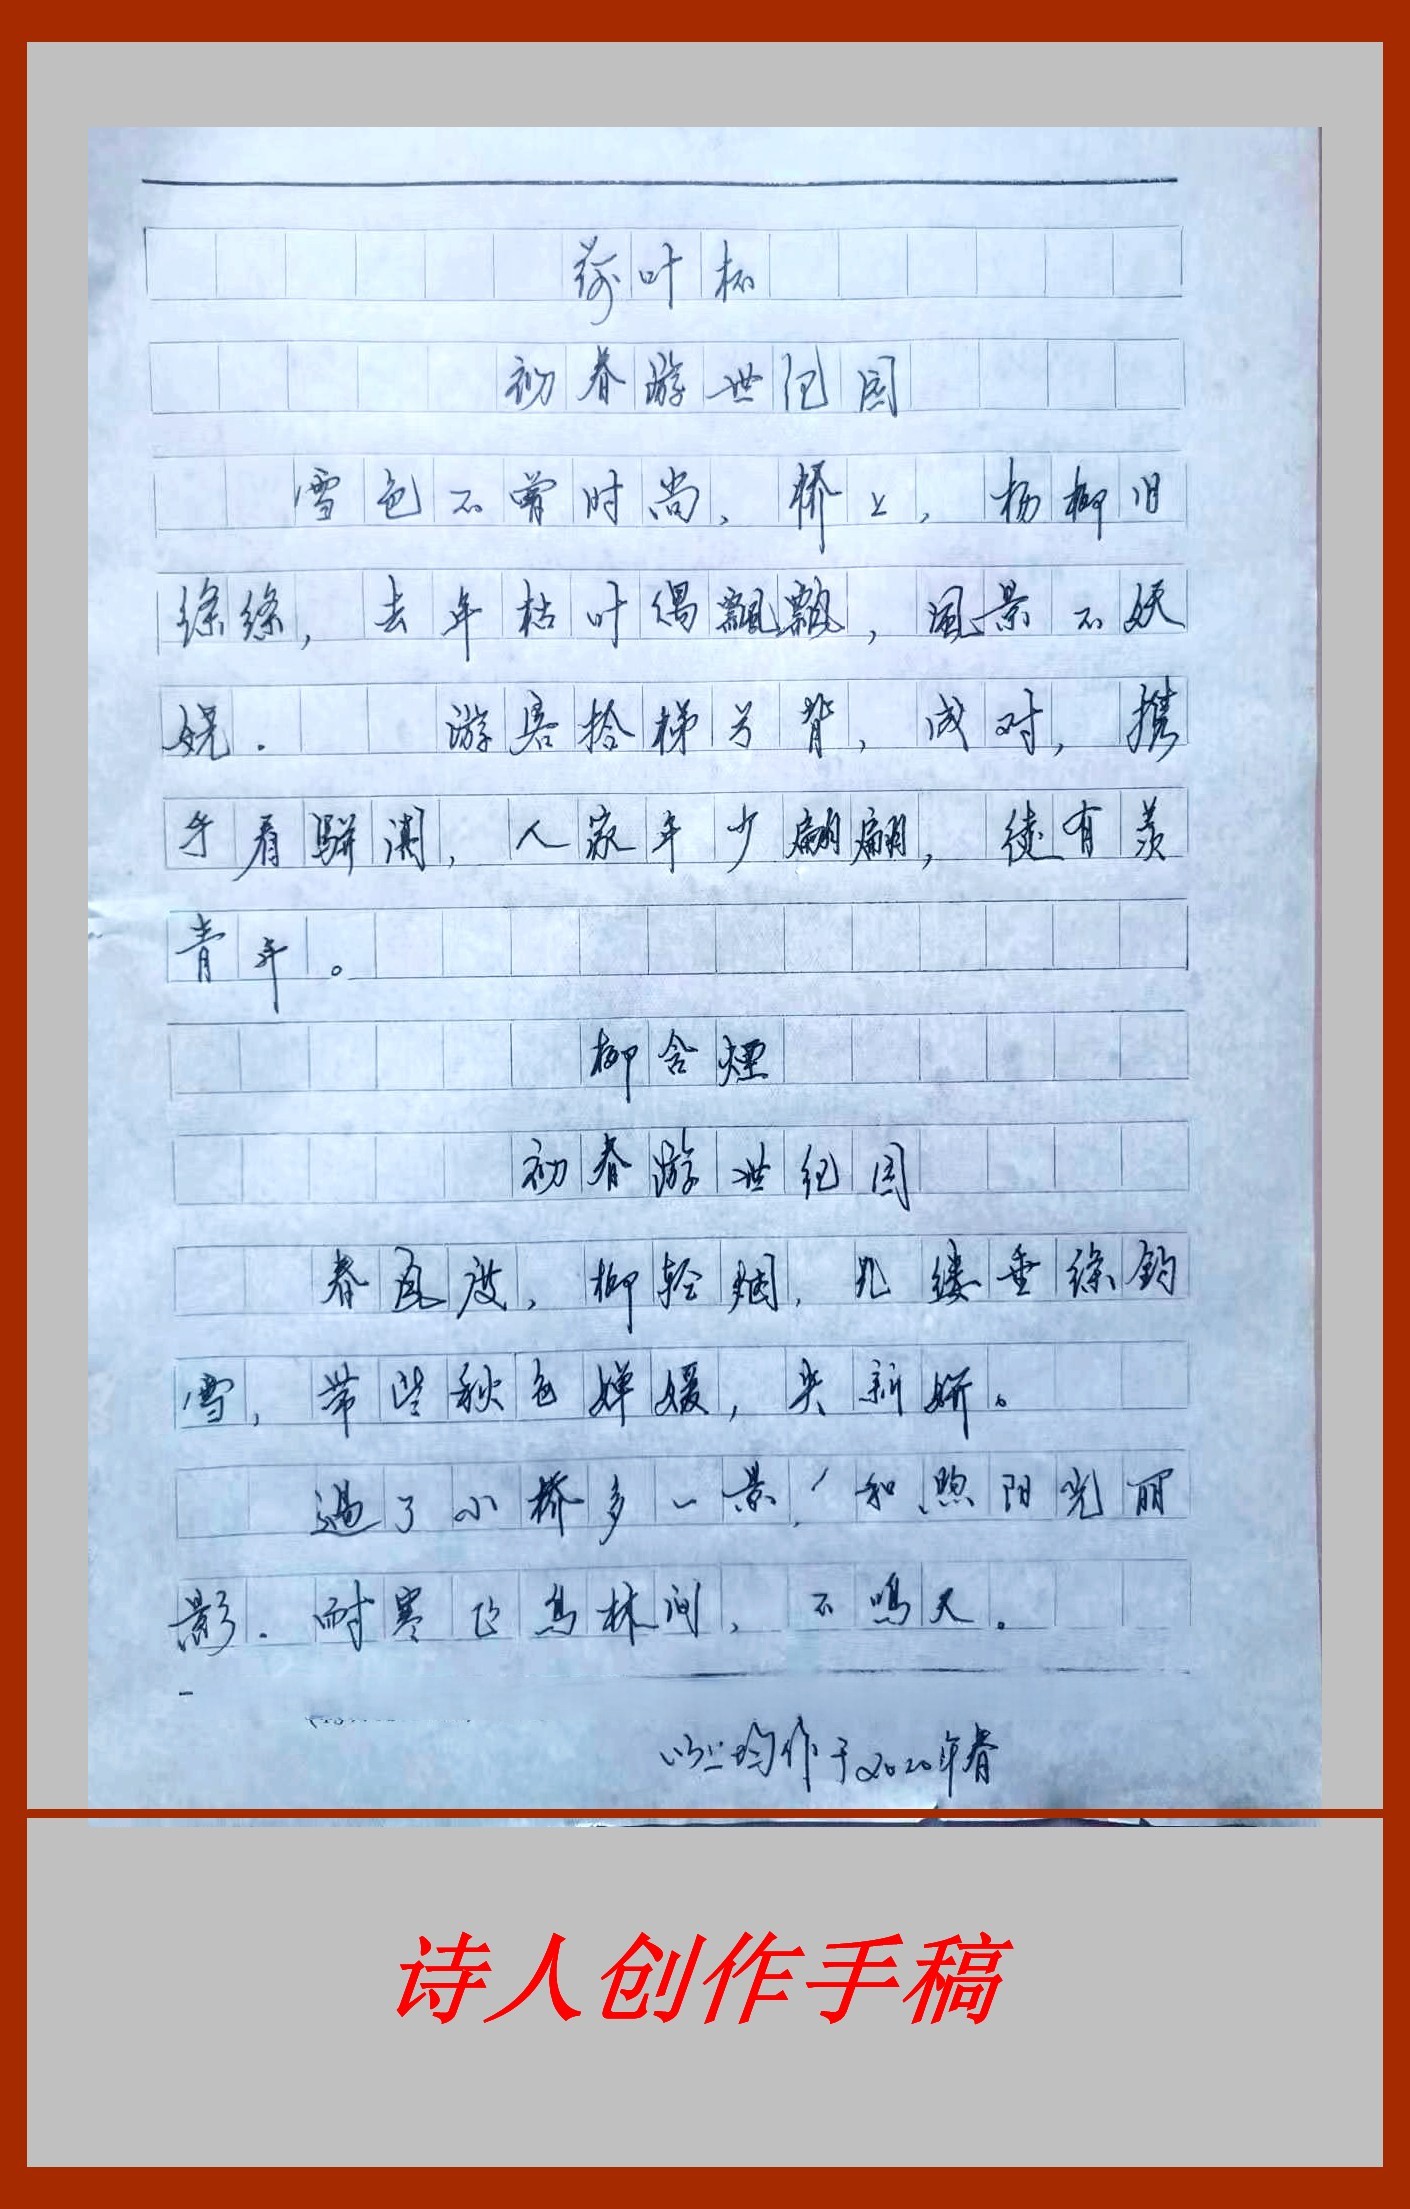 荷叶杯
初春游世纪园
雪色不曾时尚，桥上，杨柳旧
绦绦，去年枯叶偶飘飘，风景不妖
娆.游客拾梯兮背，成对，携
手看骈阗，人家年少翩翩，徒有羡
青年。
柳含烟
初春游世纪园
春风度，柳轻烟，几缕垂绦钓
雪，带些秋色婵媛，失新妍。
过了小桥多一景，和煦阳光丽
影.耐寒飞鸟林间，不鸣天。
作于2020年春
诗人创作手稿